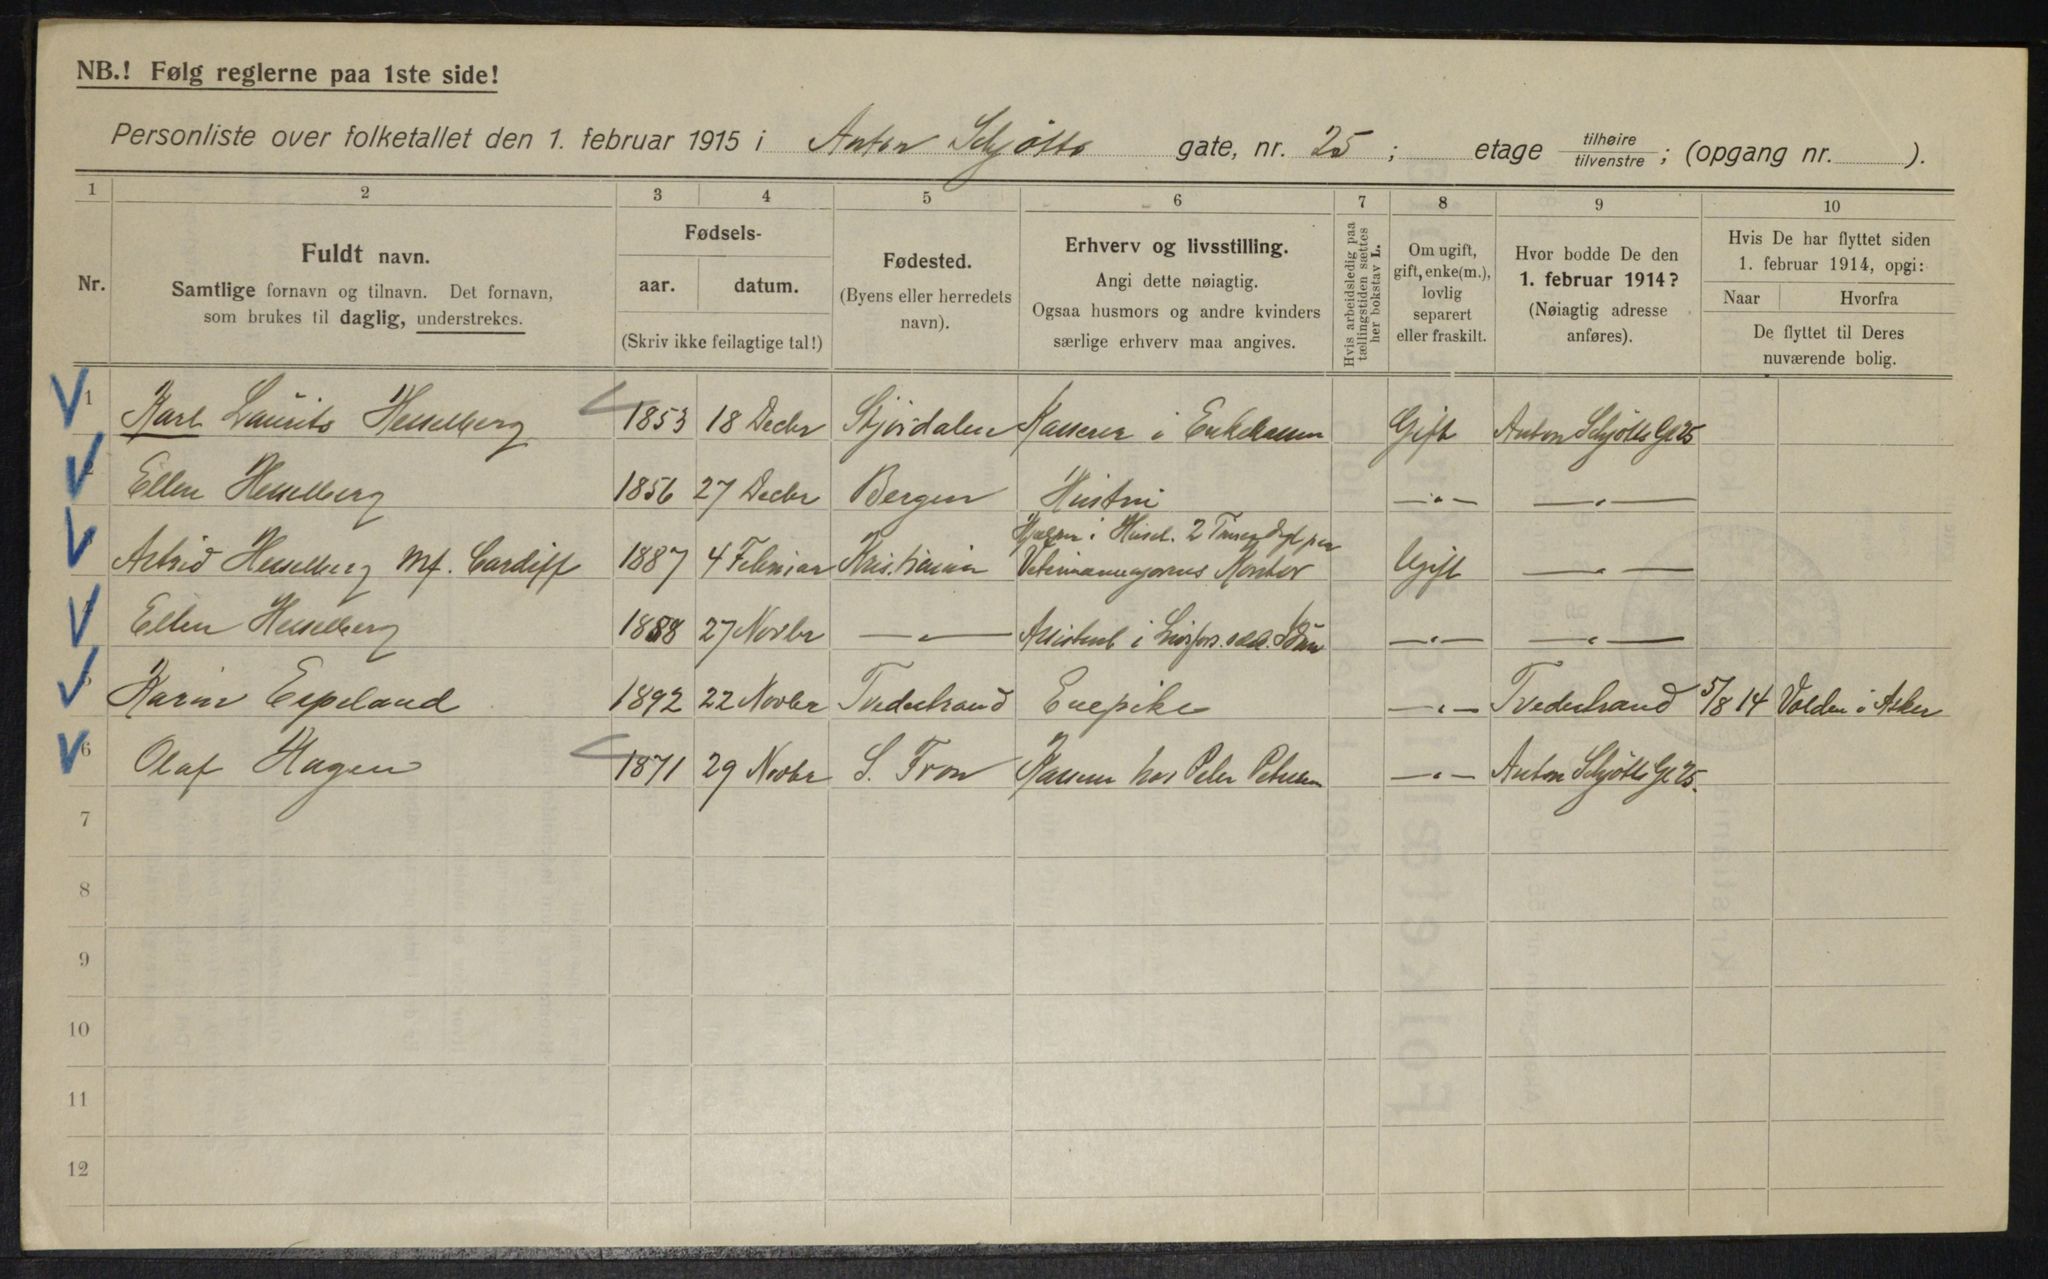 NB.! Følg reglerne paa 1ste side!
Personliste over folketallet den 1. februar 1915 i Anton Schjøtts gate, nr. 25; etage tilhøire / tilvenstre; (opgang nr. ).
1 2 3 4 5 6 7 8 9 10
Nr.
Fuldt navn.
Samtlige fornavn og tilnavn. Det fornavn,
som brukes til daglig, understrekes.
Fødsels-
aar. datum.
(Skriv ikke feilagtige tal!)
Fødested.
(Byens eller herredets
navn).
Erhverv og livsstilling.
Angi dette nøiagtig.
Ogsaa husmors og andre kvinders
særlige erhverv maa angives.
Hvis arbeidsledig paa
tællingstiden sættes
her bokstav L.
Om ugift,
gift, enke(m.),
lovlig
separert
eller fraskilt.
Hvor bodde De den
1. februar 1914?
(Nøiagtig adresse
anføres).
Hvis De har flyttet siden
1. februar 1914, opgi:
Naar Hvorfra
De flyttet til Deres
nuværende bolig.
1 Karl Laurits Hesselberg 1853 18 Decbr Stjørdalen Kasserer i Enkekassen Gift Anton Schjøtts Gt 25
2 Ellen Hesselberg 1856 27 Decbr Bergen Hustru —"— —"—
Astrid Hesselberg Mf. Cardiff 1887 4 Februar Kristiania Hjelper i Huset. 2 Timer Dgl paa
Kontor Ugift —"—
Ellen Hesselberg 1888 27 Novbr —"— Assistent i —"— —"—
5 Karin Espeland 1892 22 Novbr Tvedestrand Enepike —"— Tvedestrand 5/8 14 Valden i Asker
6 Olaf Hagen 1871 29 Novbr S. Fron Kasserer hos Peter Petersen —"— Anton Schjøtts Gt 25.
7
8
9
10
11
12